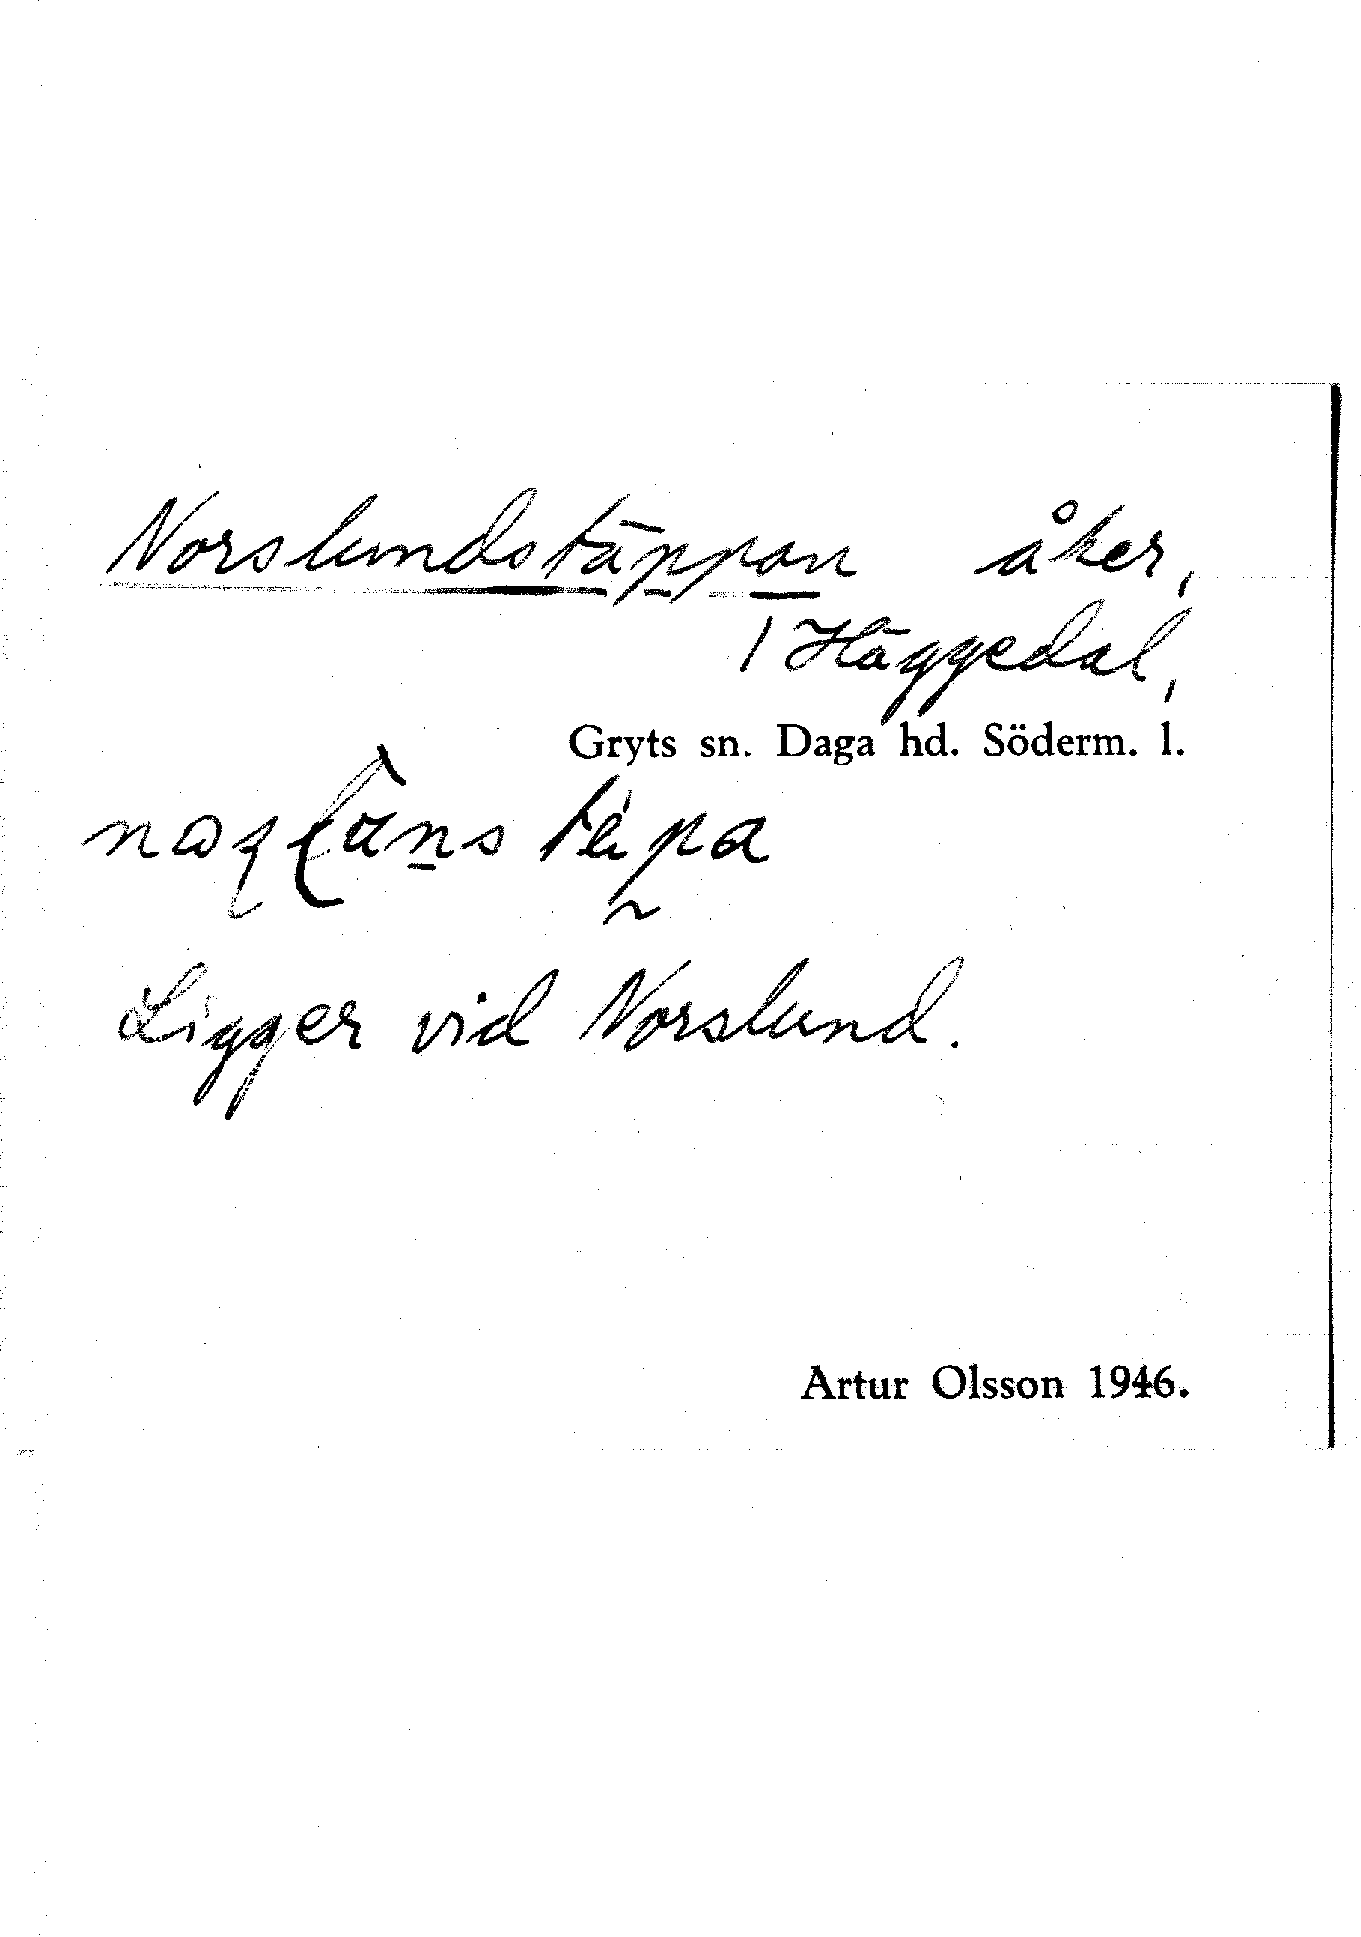 Norslundstäppan åker,
1 Häggedal,
Gryts sn. Daga hd. Söderm. l.
Ligger vid Norslund.
Artur Olsson 1946.